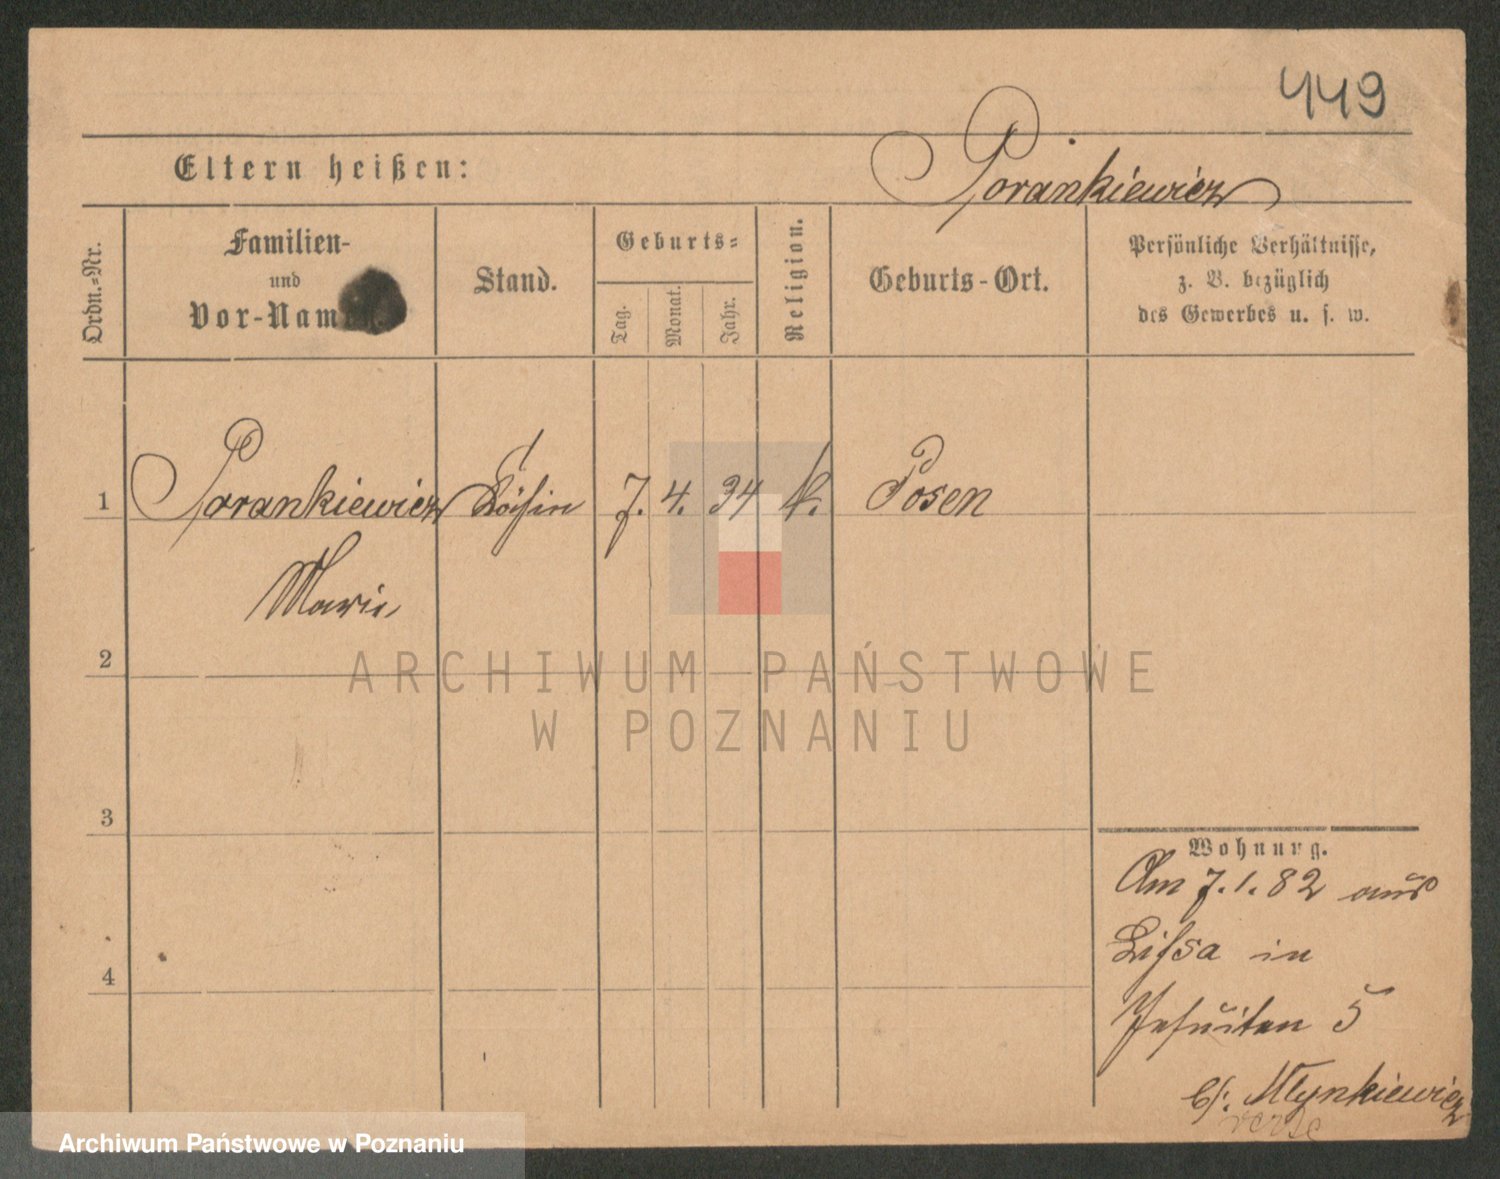 449
Eltern heißen:
Porankiewicz
Ordn.-Nr.
Familien-
und
Vor-Namen
Stand.
Geburts-
Tag.
Monat.
Jahr.
Religion.
Geburts-Ort.
Persönliche Verhältnisse,
z. B. bezüglich
des Gewerbes u. s. w.
1 Porankiewicz Köchin 7. 4. 34 k. Posen
Marie
2
3
4
Wohnung.
Am 7.1.82 aus
Lissa in
Jesuiten 5
b/. Młynkiewicz
verte
ARCHIWUM PAŃSTWOWE
W POZNANIU
Archiwum Państwowe w Poznaniu